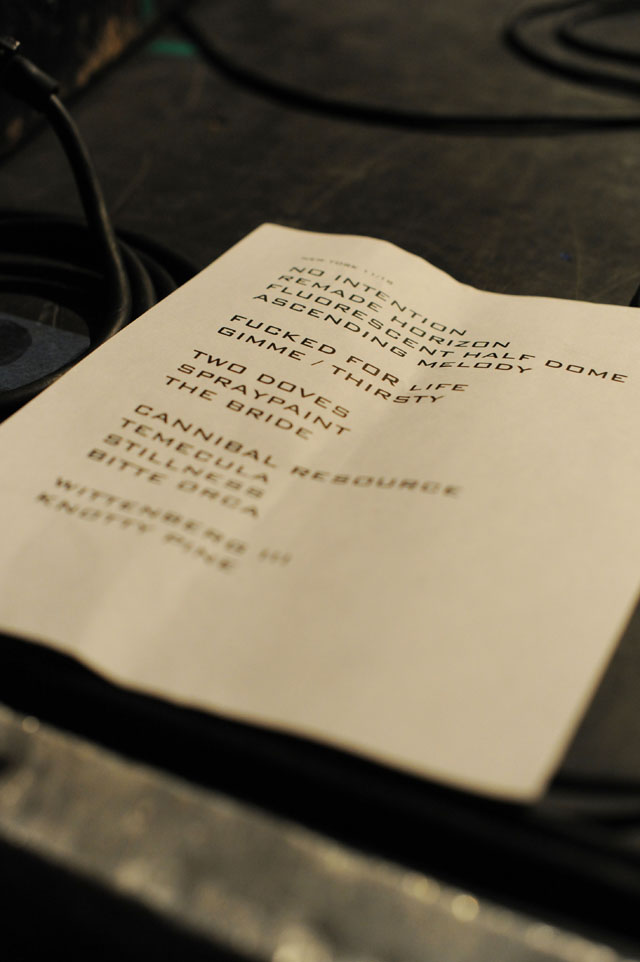 NEW YORK 11/19
NO INTENTION
REMADE HORIZON
FLUORESCENT HALF DOME
ASCENDING MELODY
FUCKED FOR LIFE
GIMME / THIRSTY
TWO DOVES
SPRAYPAINT
THE BRIDE
CANNIBAL RESOURCE
TEMECULA
STILLNESS
BITTE ORCA
WITTENBERG III
KNOTTY PINE